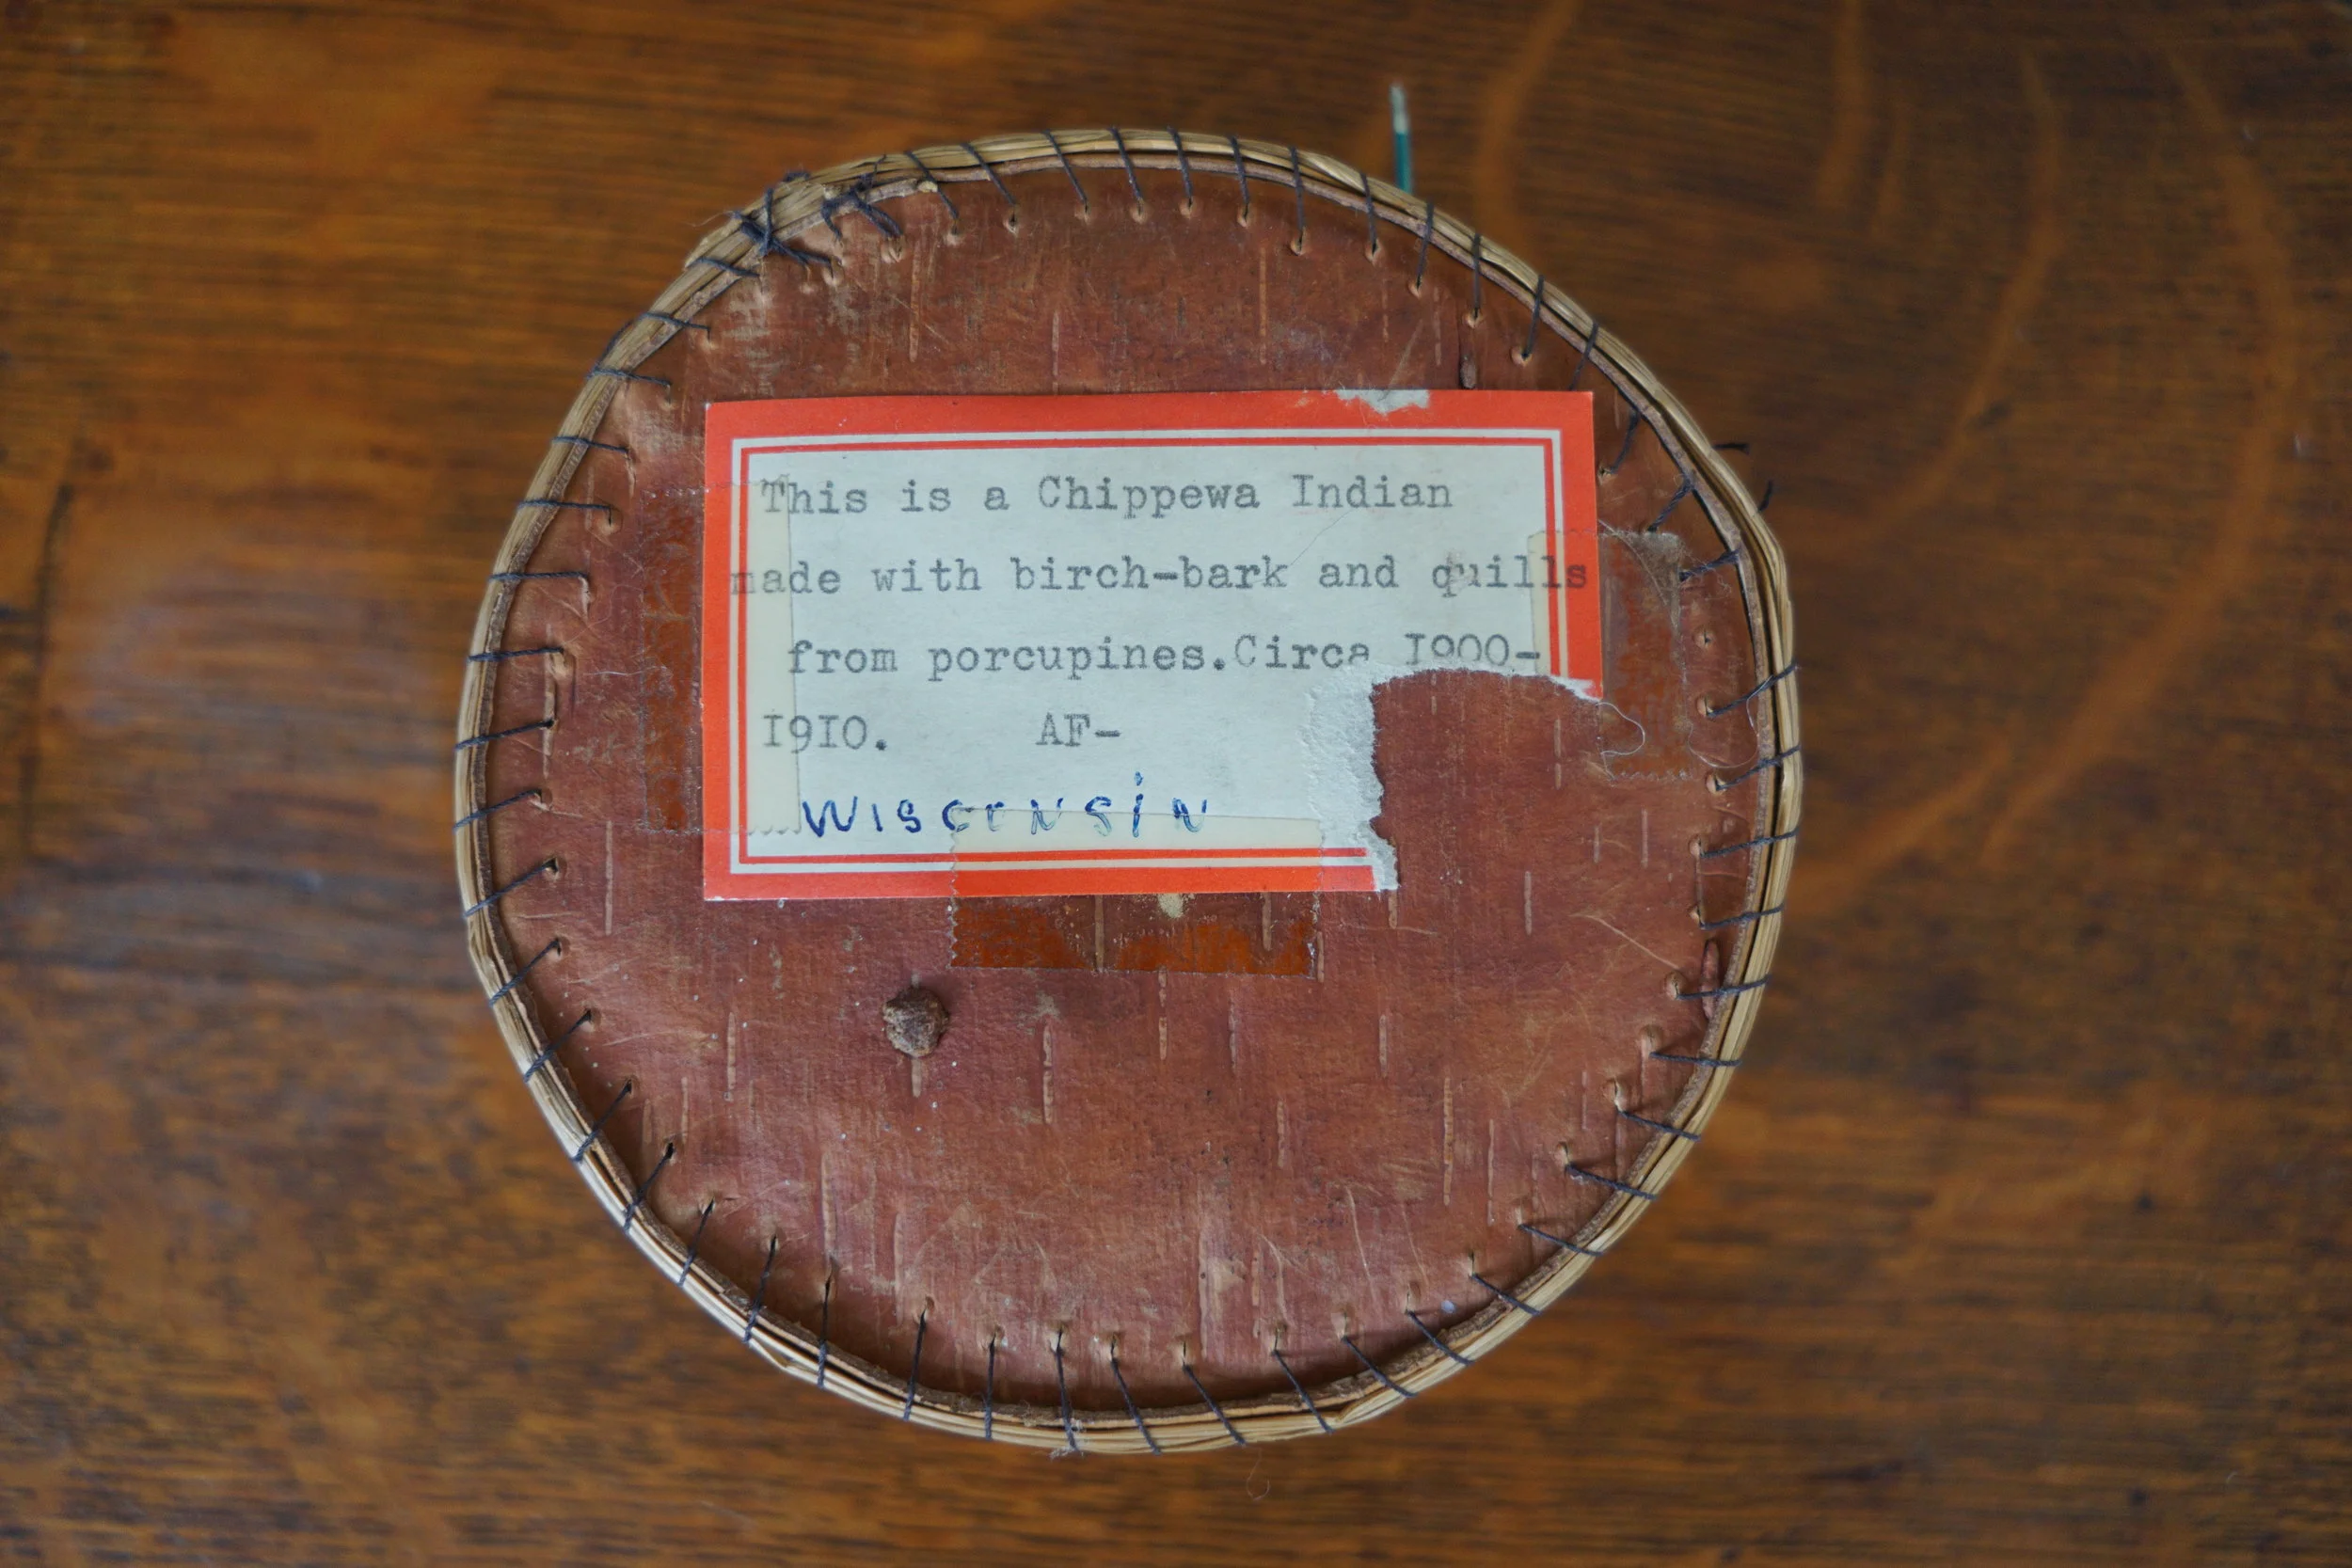 This is a Chippewa Indian
made with birch-bark and quills
from porcupines.Circa I900-
I9I0. AF-
Wisconsin